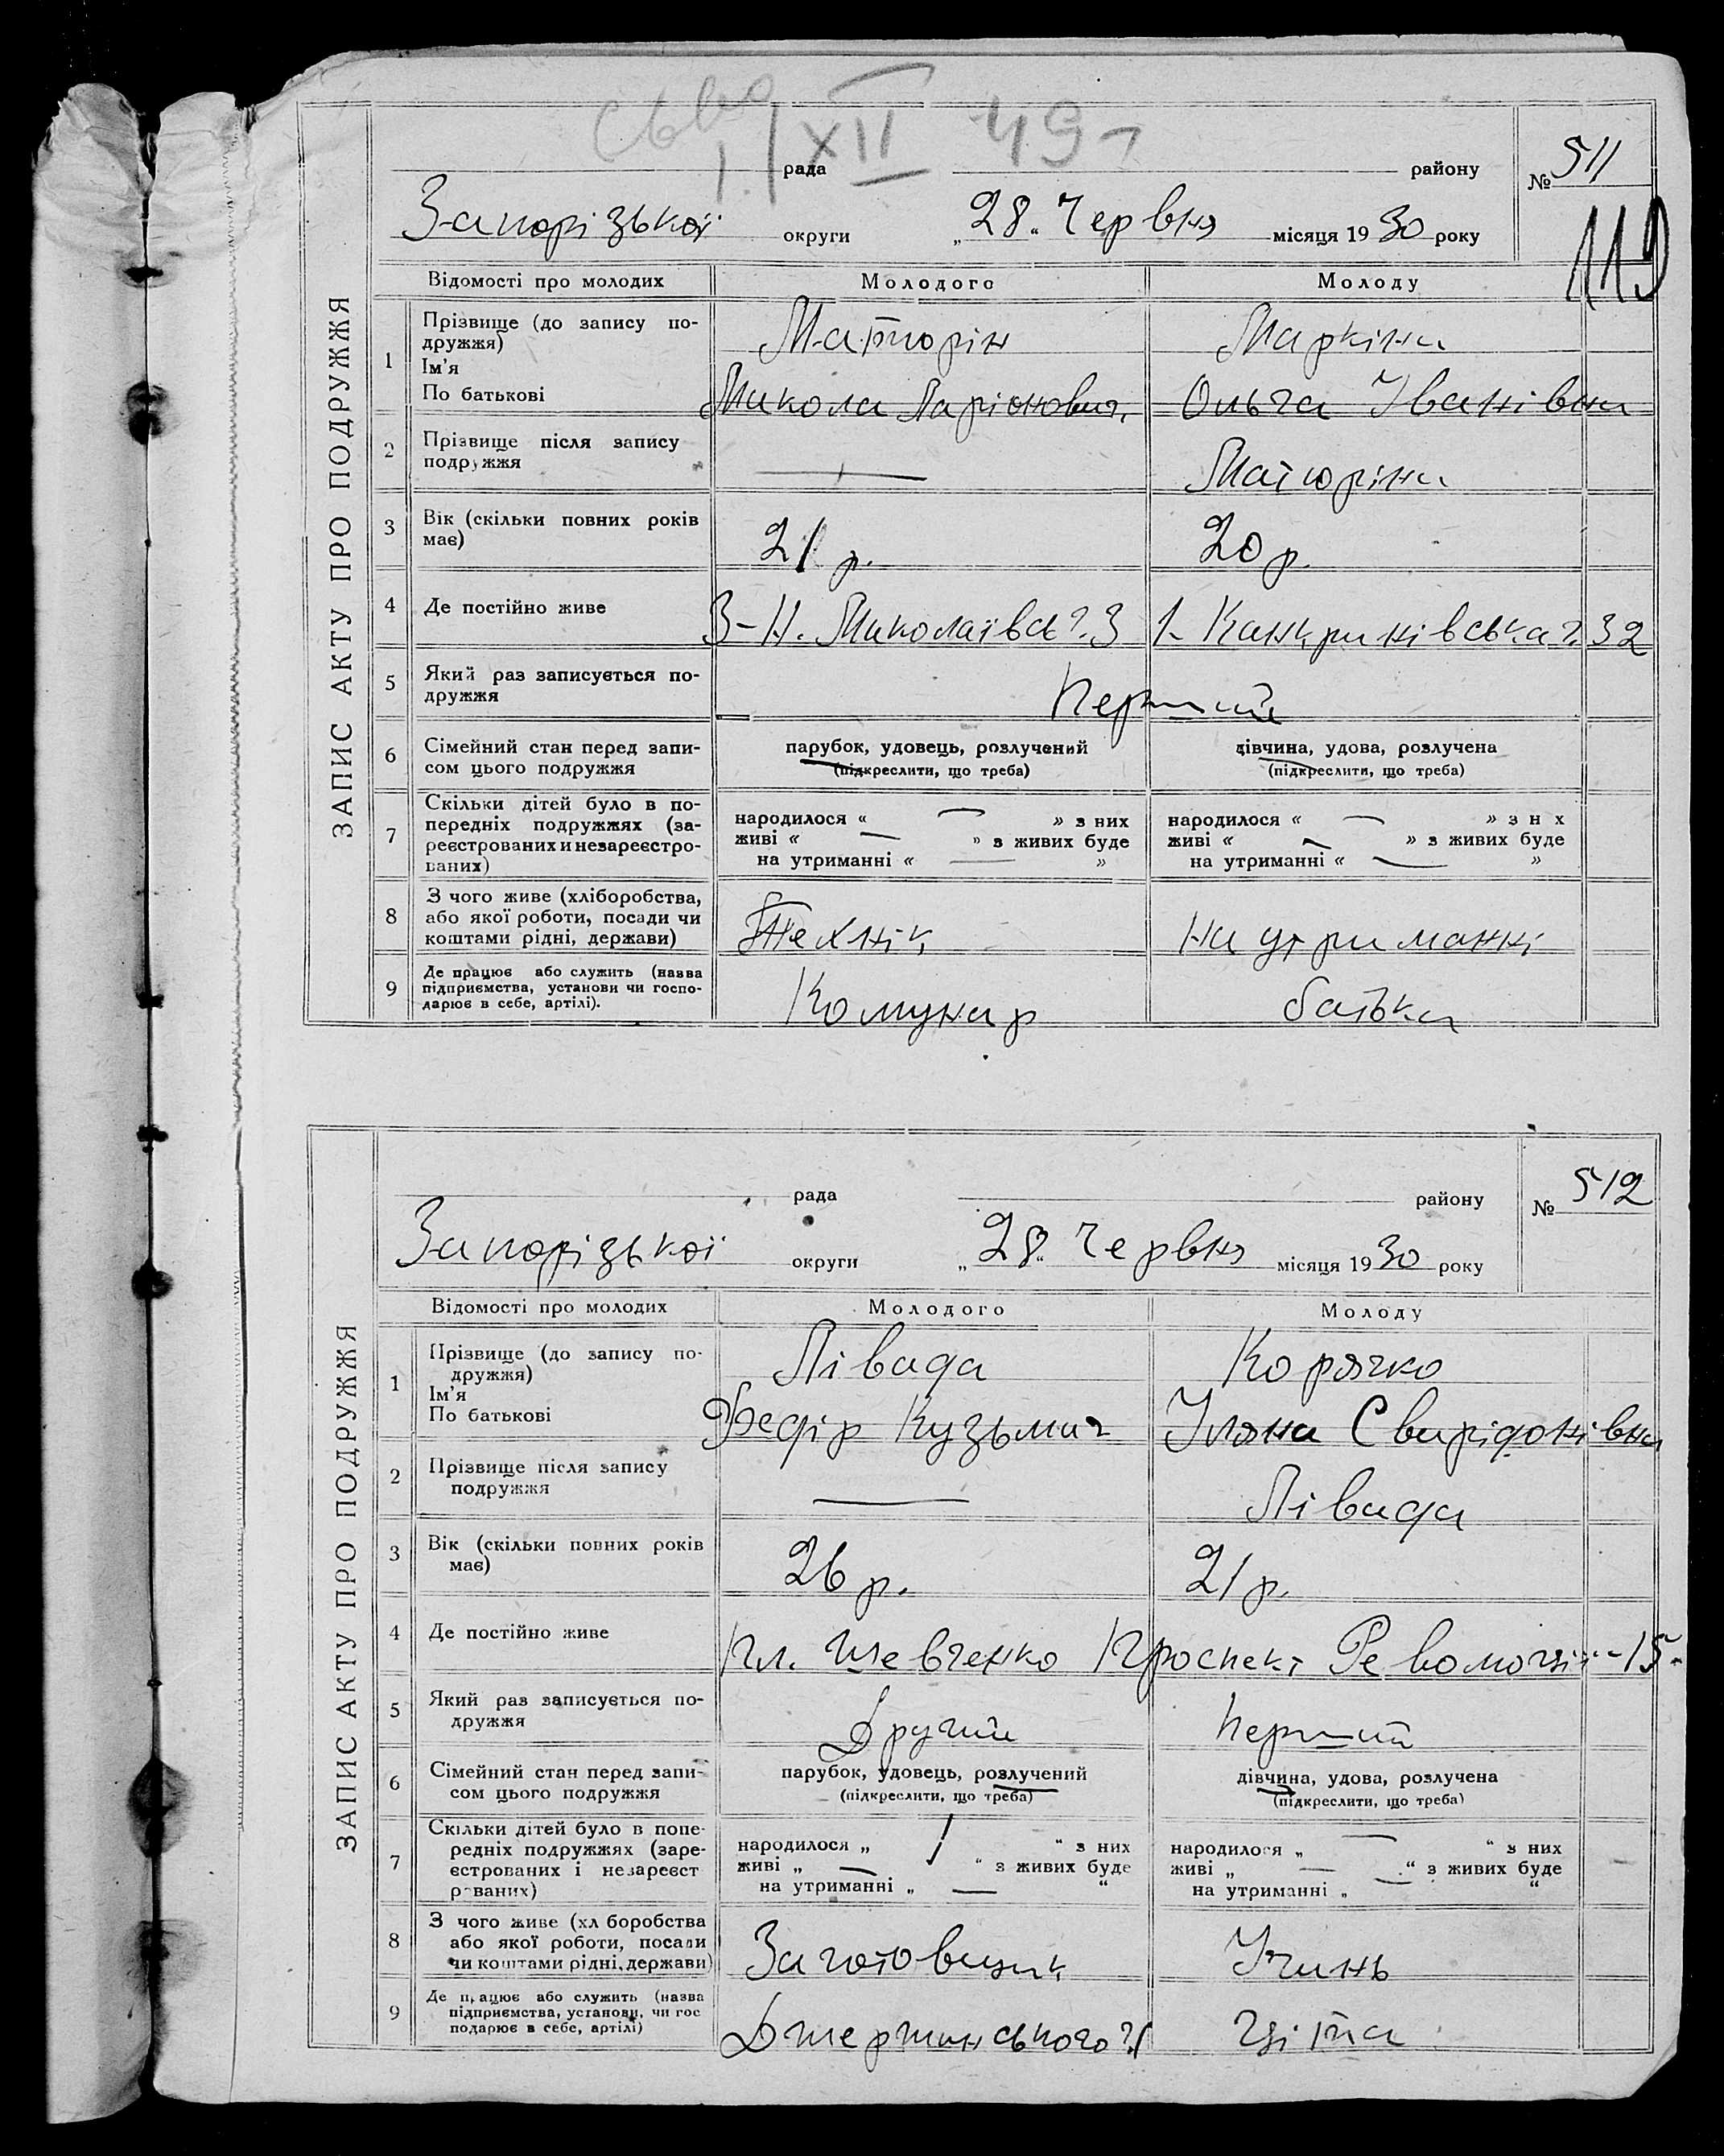 XII 49
рада району № 511
Запорізької округи „28“ Червня місяця 1930 року
119
ЗАПИС АКТУ ПРО ПОДРУЖЖЯ
Відомості про молодих Молодого Молоду
1 Прізвище (до запису по-
дружжя) Матюрін Маркіна
Ім'я
По батькові Микола Ларіонович Ольга Іванівна
2 Прізвище після запису
подружжя — Матюріна
3 Вік (скільки повних років
має) 21 р. 20 р.
4 Де постійно живе 3-Н. Миколаївсь 3 1- Канкринівська 32
5 Який раз записується по-
дружжя Перший
6 Сімейний стан перед запи-
сом цього подружжя
парубок, удовець, розлучений дівчина, удова, розлучена
(підкреслити, що треба) (підкреслити, що треба)
7 Скільки дітей було в по-
передніх подружжях (за-
реєстрованих и незареєстро-
ваних)
народилося « — » з них народилося « — » з н х
живі « — » з живих буде живі « — » з живих буде
на утриманні « — » на утриманні « — »
8 З чого живе (хліборобства,
або якої роботи, посади чи
коштами рідні, держави) Технік на утриманні
9 Де працює або служить (назва
підприємства, установи чи госпо-
дарює в себе, артілі). Комунар батька
рада району № 512
Запорізької округи „28“ Червня місяця 1930 року
ЗАПИС АКТУ ПРО ПОДРУЖЖЯ
Відомості про молодих Молодого Молоду
1 Прізвище (до запису по-
дружжя) Лівада Корячко
Ім'я
По батькові Федір Кузьмич Уляна Свиридонівна
2 Прізвище після запису
подружжя — Лівада
3 Вік (скільки повних років
має) 26 р. 21 р.
4 Де постійно живе Пл. Шевченко Проспект Революції -15-
5 Який раз записується по-
дружжя Другий Перший
6 Сімейний стан перед запи-
сом цього подружжя
парубок, удовець, розлучений дівчина, удова, розлучена
(підкреслити, що треба) (підкреслити, що треба)
7 Скільки дітей було в попе-
редніх подружжях (заре-
єстрованих і незареєст
рованих)
народилося „ 1 “ з них народилося „ — “ з них
живі „ — “ з живих буде живі „ — “ з живих буде
на утриманні „ — “ на утриманні „ — “
8 З чого живе (хл боробства
або якої роботи, посади
чи коштами рідні, держави) Заготовщик Учень
9 Де працює або служить (назва
підприємства, установи, чи гос
подарює в себе, артілі) Джержинського